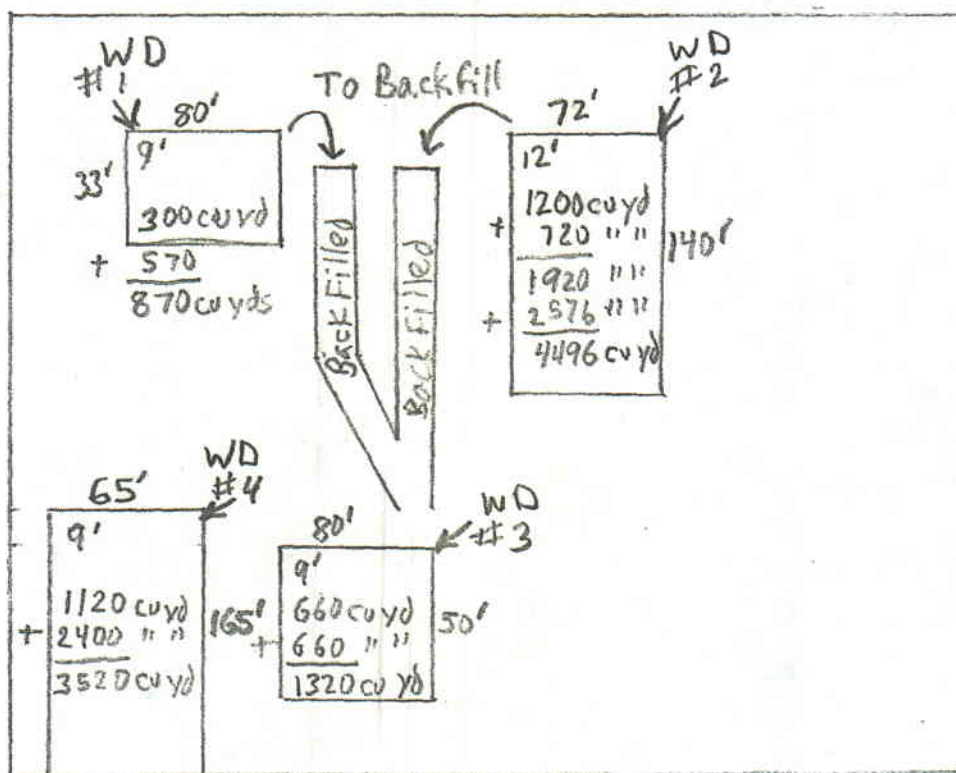 WD
#1
80'
33'
9'
300 cu yd
+ 570
870 cu yds
To Backfill
Back Filled
Back Filled
WD
#2
72'
12'
1200 cu yd
+ 720 " "
1920 " "
+ 2576 " "
4496 cu yd
140'
WD
#4
65'
9'
1120 cu yd
+ 2400 " "
3520 cu yd
165'
WD
#3
80'
9'
660 cu yd
+ 660 " "
1320 cu yd
50'